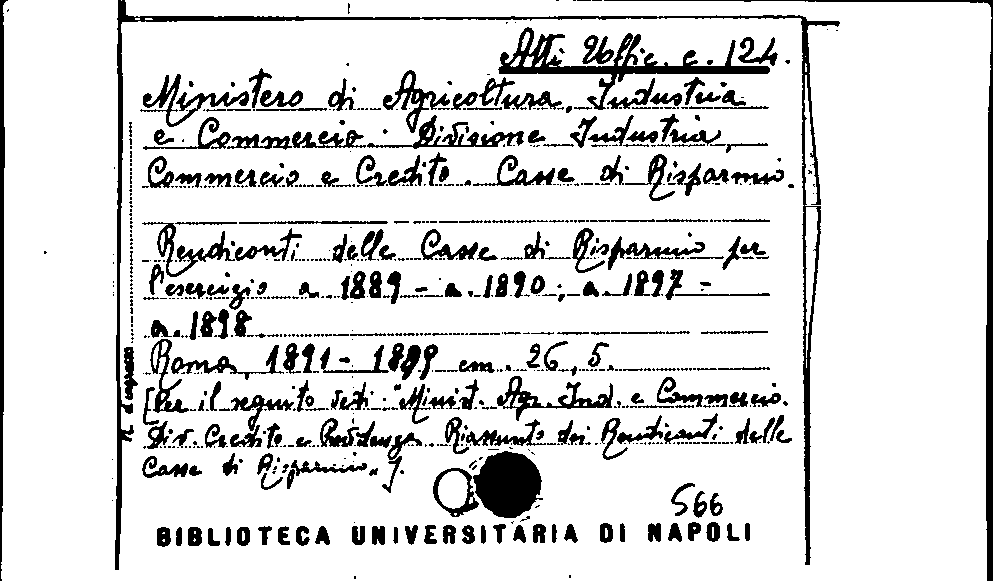 Atti Uffic. c. 124.
Ministero di Agricoltura, Industria
e Commercio. Divisione Industria,
Commercio e Credito. Casse di Risparmio.
Rendiconti delle Casse di Risparmio per
l'esercizio a. 1889 - a. 1890; a. 1897 -
a. 1898.
Roma, 1891 - 1899 cm. 26,5.
[Per il seguito vedi: "Minist. Agr. Ind. e Commercio.
Div. Credito e Previdenza. Riassunto dei Rendiconti delle
Casse di Risparmio"].
566
BIBLIOTECA UNIVERSITARIA DI NAPOLI
N. d'ingresso